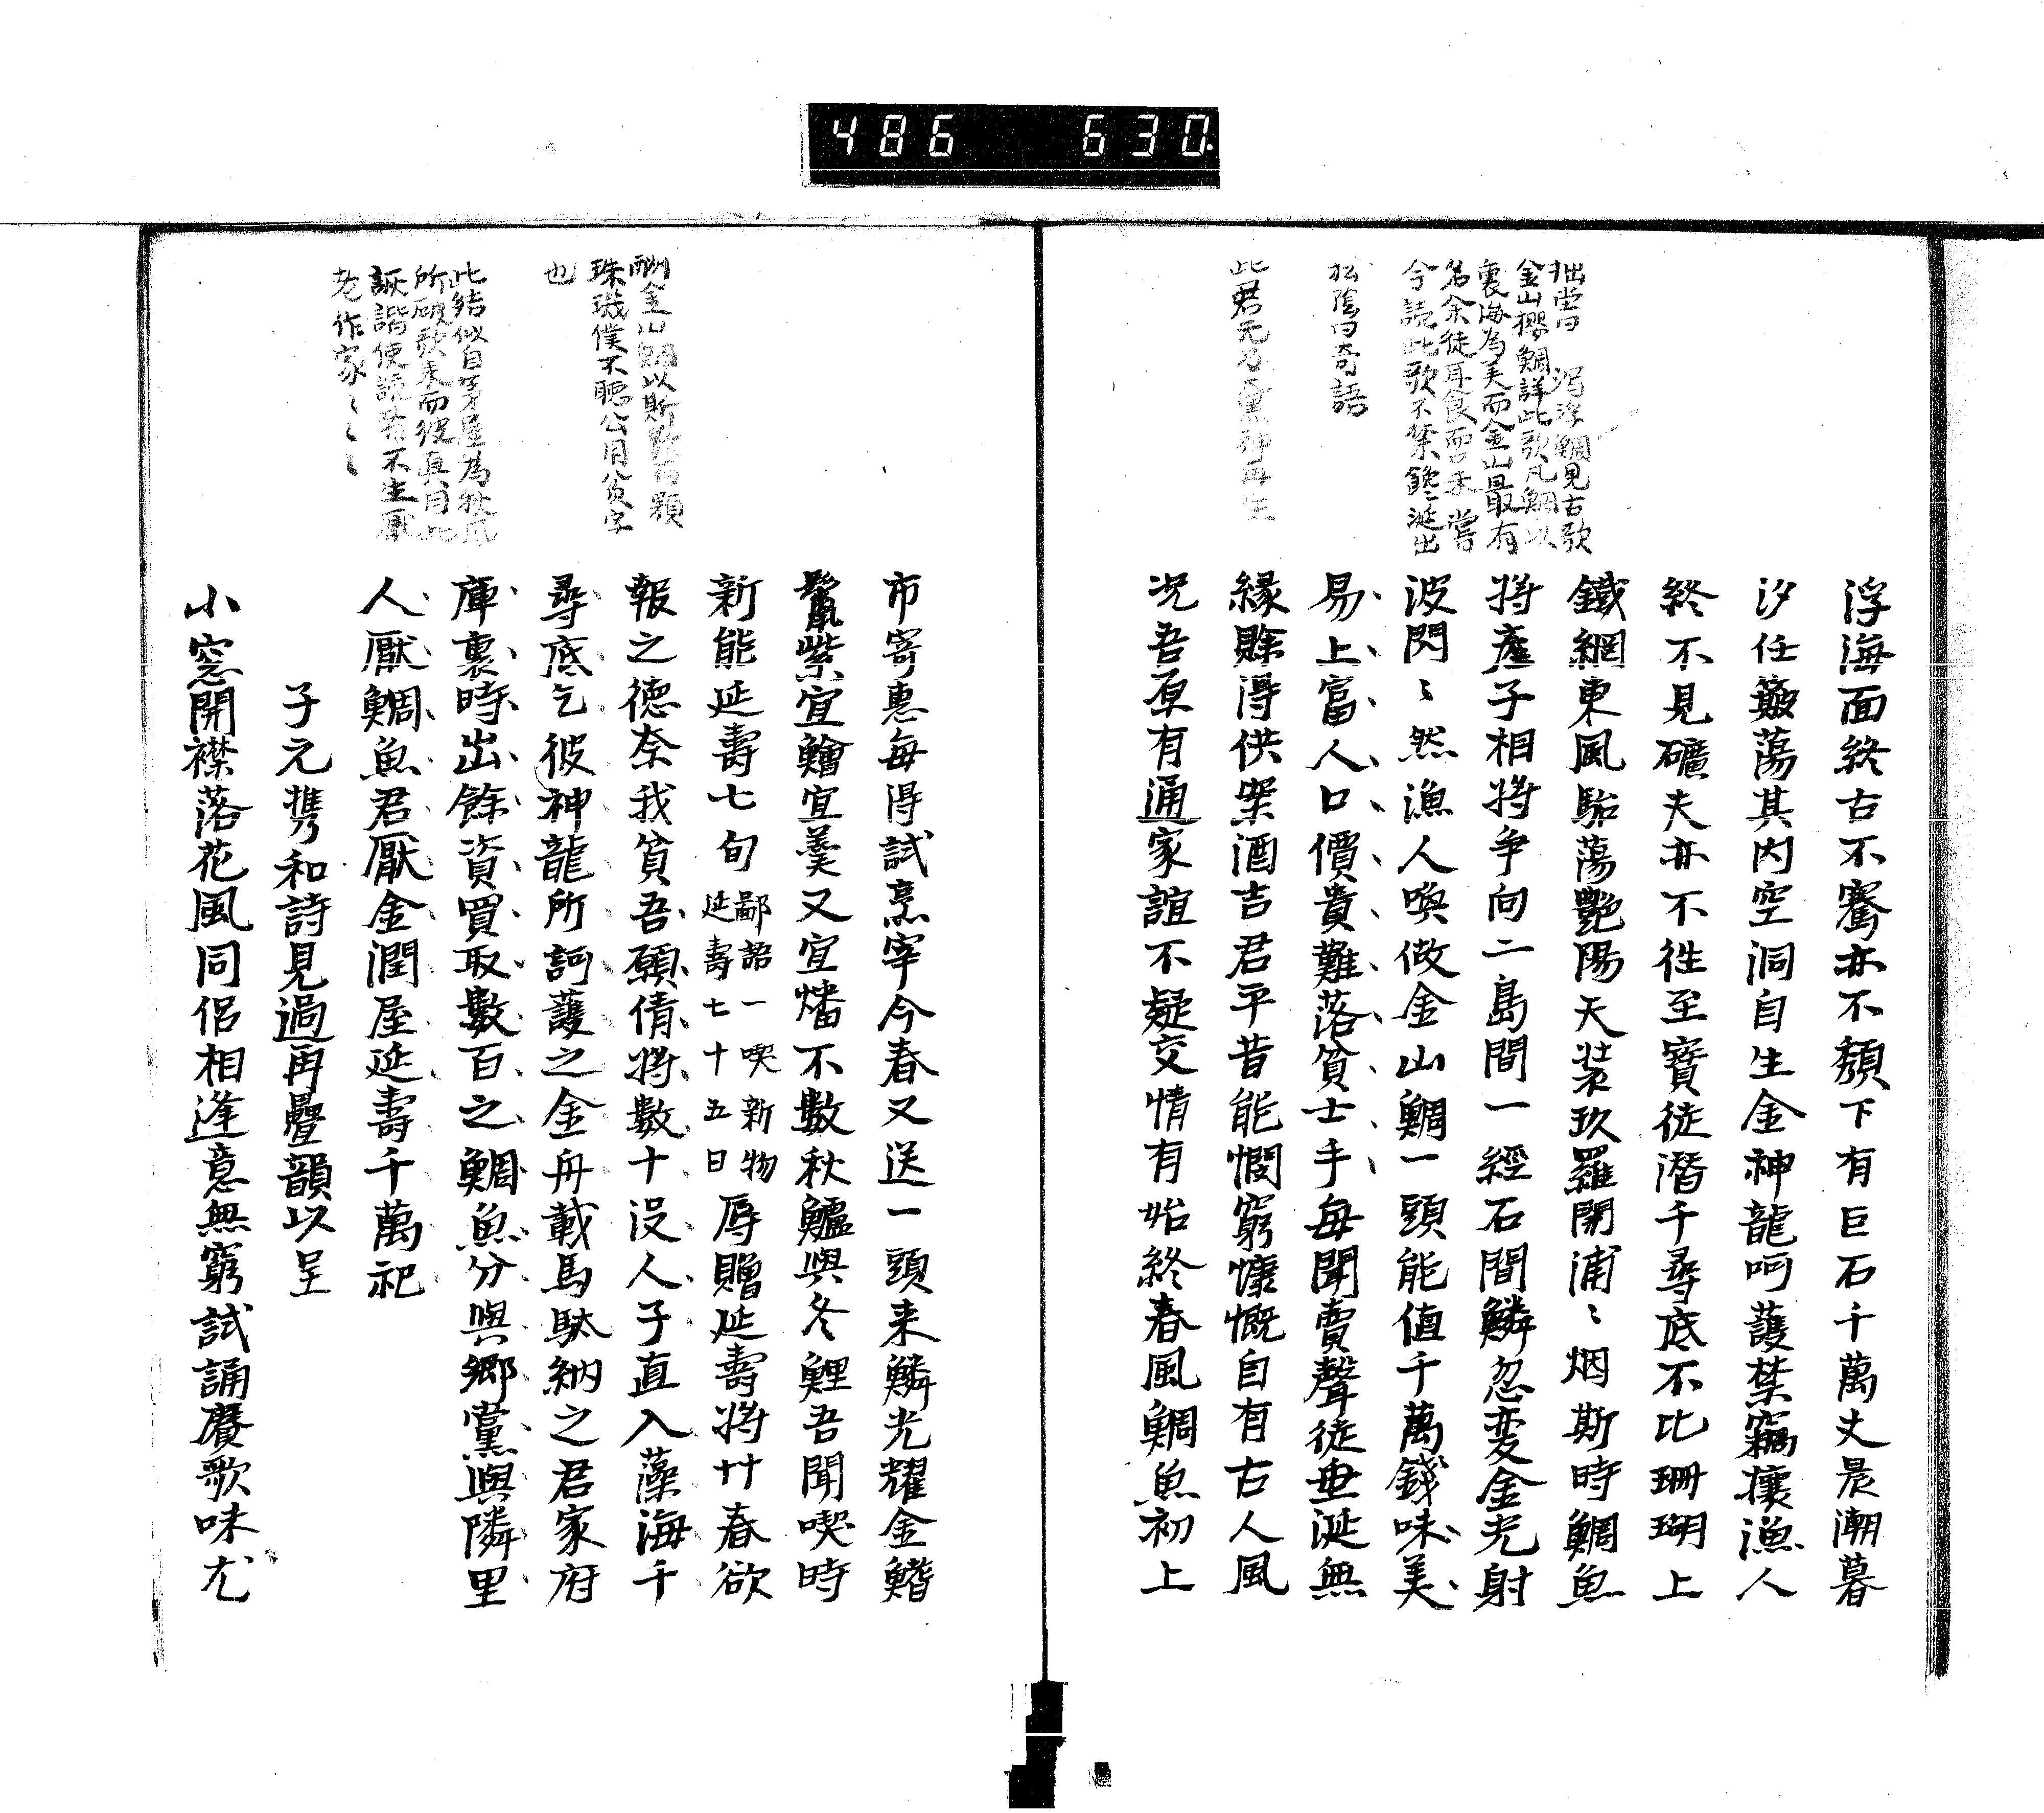 486 630
拙堂曰 浮鯛見古歌
金山櫻鯛詳此歌凡鯛以
裏海為美而金山最有
名余徒耳食而口未嘗
今読此歌不禁饞涎出
松陰曰奇語
浮海面終古不騫亦不頽下有巨石千萬丈晨潮暮
汐任簸蕩其内空洞自生金神龍呵護禁竊攘漁人
終不見礦夫亦不徃至寶徒潛千尋底不比珊瑚上
鐵網東風駘蕩艷陽天装玖羅開浦〻烟斯時鯛魚
将産子相将争向二島間一經石間鱗忽変金光射
波閃〻然漁人喚做金山鯛一頭能値千萬錢味美
易上富人口價貴難落貧士手毎聞賣聲徒垂涎無
縁賖得供案酒吉君平昔能憫窮慷慨自有古人風
况吾原有通家誼不疑交情有始終春風鯛魚初上
珠璣僕不聴公用貧字
也
所破歌来而彼真用此
詼諧使読者不生厭
老作家〻〻〻
市寄惠毎得試烹宰今春又送一頭来鱗光耀金鰭
鬣紫宜鱠宜羹又宜燔不數秋鱸與冬鯉吾聞喫時
新能延壽七旬鄙語一喫新物延壽七十五日辱贈延壽将廿春欲
報之德奈我貧吾願倩将數十没人子直入藻海千
尋底乞彼神龍所訶護之金舟載馬馱納之君家府
庫裏時出餘資買取數百之鯛魚分與郷黨與隣里
人厭鯛魚君厭金潤屋延壽千萬祀
子元携和詩見過再疊韻以呈
小窓開襟落花風同侣相逢意無窮試誦賡歌味尤